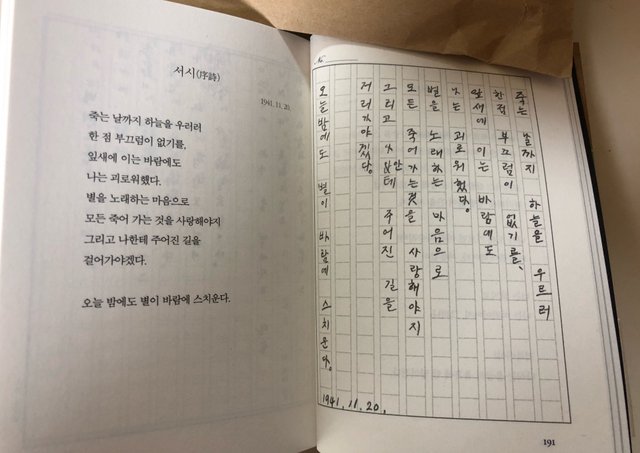 서시(序詩)
1941. 11. 20.
죽는 날까지 하늘을 우러러
한 점 부끄럼이 없기를,
잎새에 이는 바람에도
나는 괴로워했다.
별을 노래하는 마음으로
모든 죽어 가는 것을 사랑해야지
그리고 나한테 주어진 길을
걸어가야겠다.
오늘 밤에도 별이 바람에 스치운다.
No.
죽는 날까지 하늘을 우르러
한점 부끄럼이 없기를,
잎새에 이는 바람에도
나는 괴로워했다.
별을 노래하는 마음으로
모든 죽어가는것을 사랑해야지
그리고 나안테 주어진 길을
거러가야겠다.
오늘밤에도 별이 바람에 스치운다.
1941. 11. 20.
191